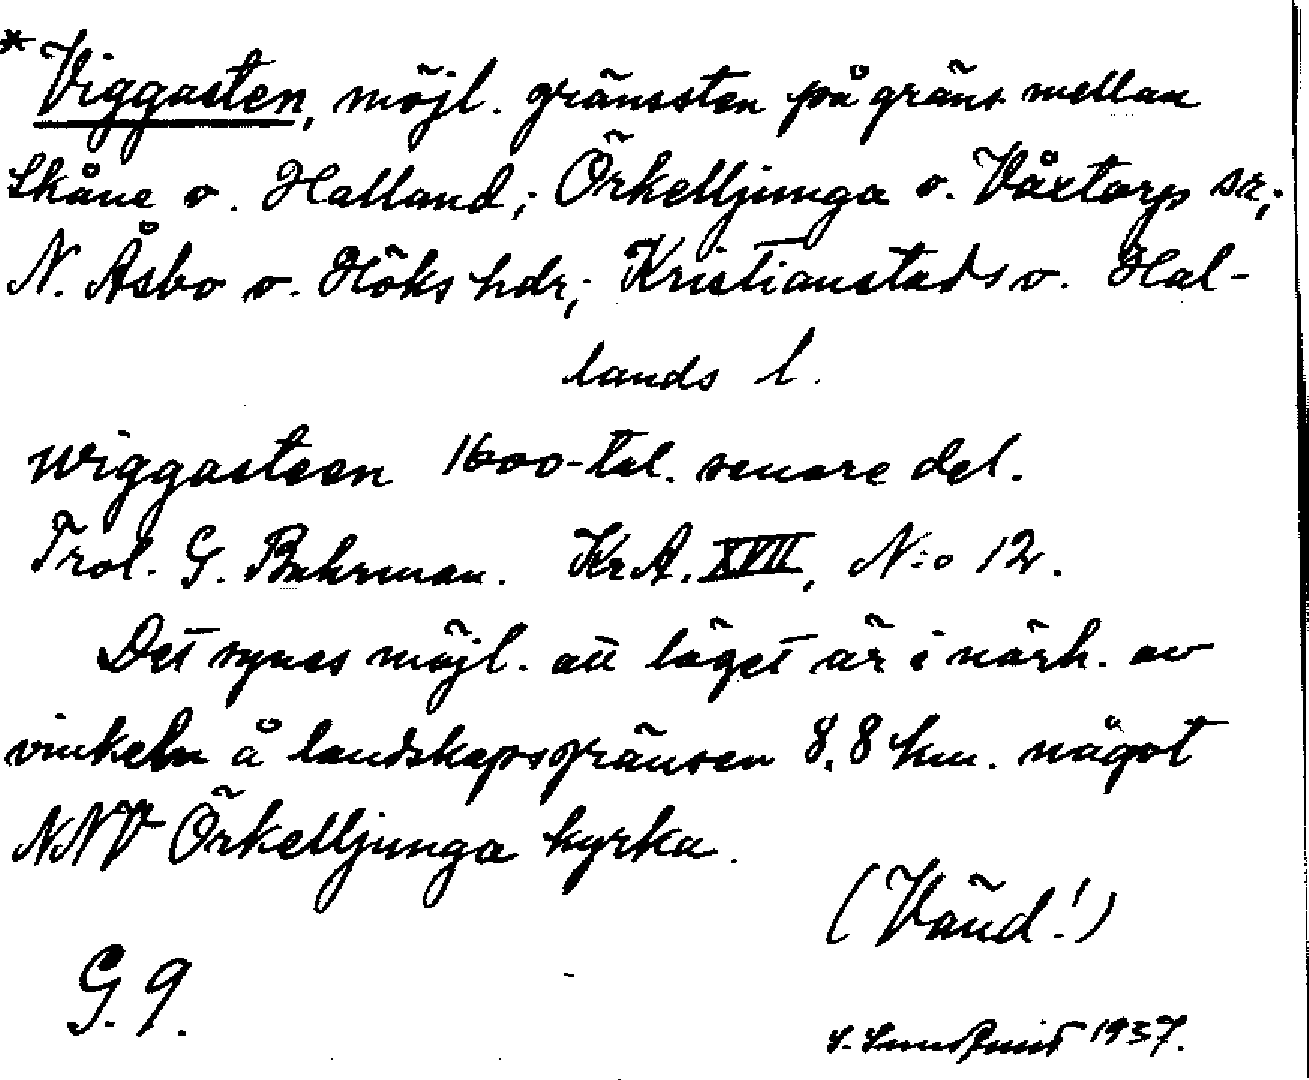 * Viggasten, möjl. gränssten på gräns mellan
Skåne o. Halland; Örkelljunga o. Våxtorp sr;
N. Åsbo o. Höks hdr; Kristianstads o. Hal-
lands l.
wiggasteen 1600-tal. senare del.
Trol. G. Buhrman. Kr.A. XVII, N:o 12.
Det synes möjl. att läget är i närh. av
vinkeln å landskapsgränsen 8,8 km. något
NNV Örkelljunga kyrka.
(Vänd!)
G. 9.
1937.